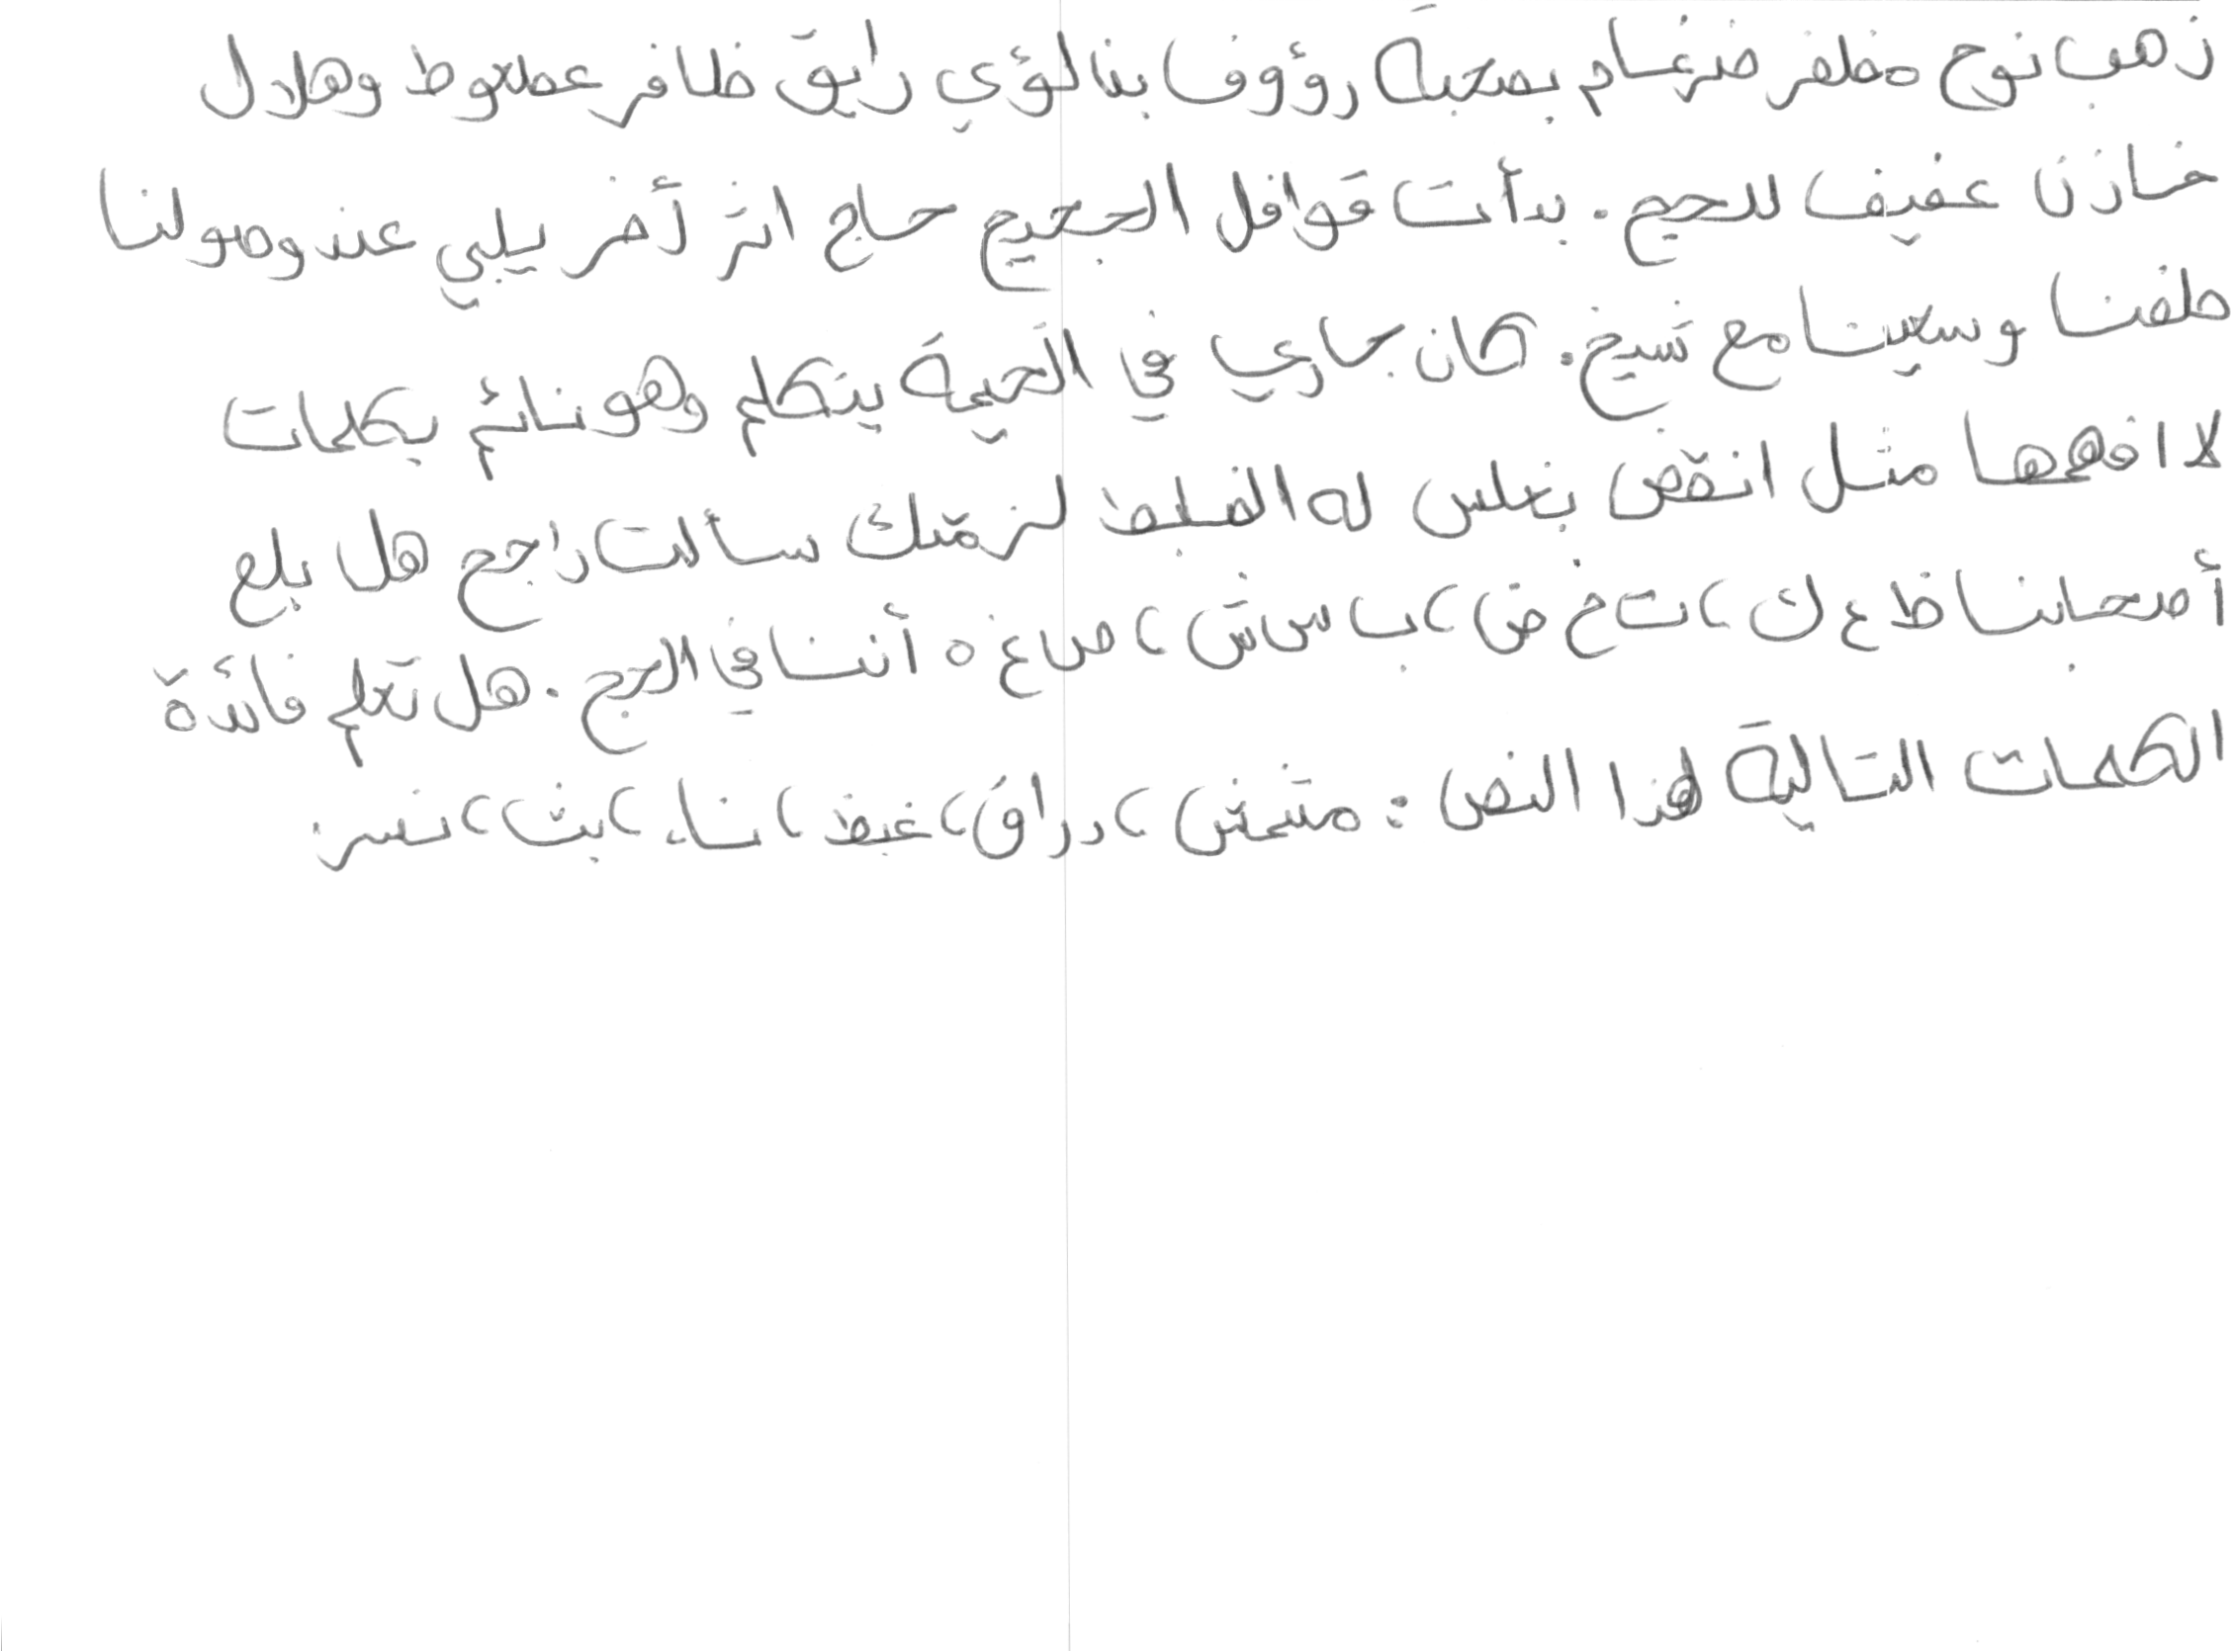 ذهب نوح مظفر ضرغام بصحبة رؤوف بن لؤي رايق ظافر عطعوط وهلال
خازن عفيف للحج . بدأت قوافل الحجيج حاج اثر أخر يلبي عند وصولنا
طفنا وسعينا مع شيخ . كان جاري في الخيمة يتكلم وهو نائم بكلمات
لا افهمها مثل انقض بغلس له الغليظ لزمتك سألت راجح هل بلع
أصحابنا ظ ع ك ، ت خ ض ، ب س ش ، ص غ ه أننا في الحج . هل تعلم فائدة
الكلمات التالية لهذا النص : مشمش ، دراق ، غيظ ، نا ، بث ، نسر .